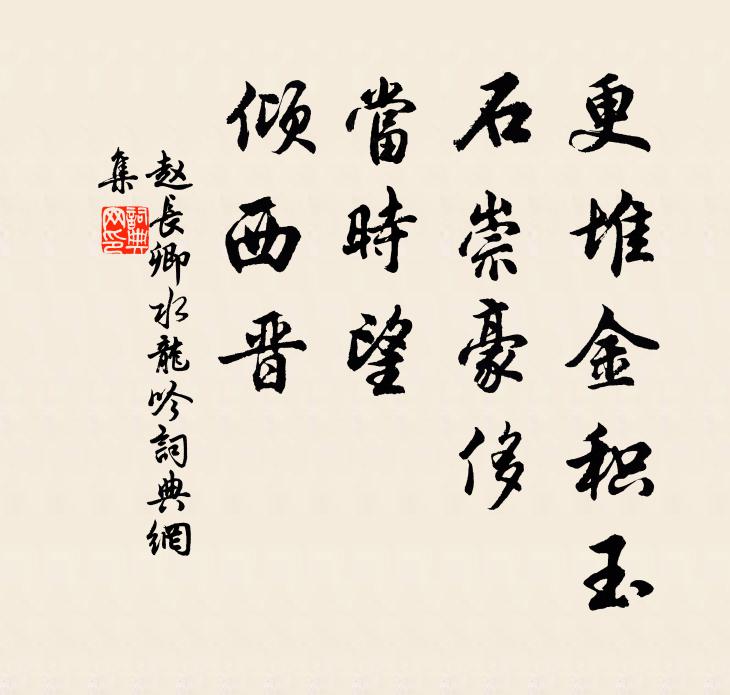 更堆金积玉
石崇豪侈
當時望
倾西晋
赵長卿水龍吟詞典網
集
詞典
网印